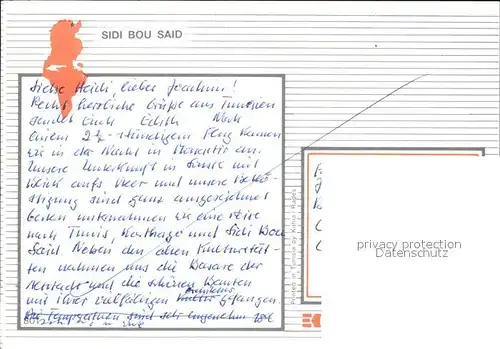 SIDI BOU SAID
Liebe Heidi, lieber Joachim!
Recht herzliche Grüße aus Tunesien
sendet Euch Edith Nach
einem 2½-stündigem Flug kamen
wir in der Nacht in Monastir an.
Unsere Unterkunft in Sousse mit
Blick aufs Meer und unsere Bekö-
stigung sind ganz ausgezeichnet
unternahmen wir eine Reise
nach Tunis, Karthago und Sidi Bou
Said. Neben den alten Kulturstät-
ten nahmen uns die Basare der
und die schönen Bauten
mit ihrer vielfältigen Kultur gefangen.
Die Temperaturen sind sehr angenehm
Printed in Tunisia by
privacy protection
Datenschutz